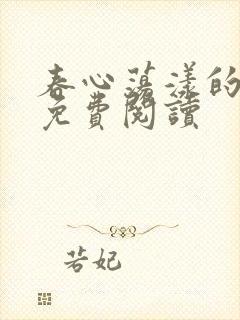 春心蕩漾的
免費閱讀
若妃